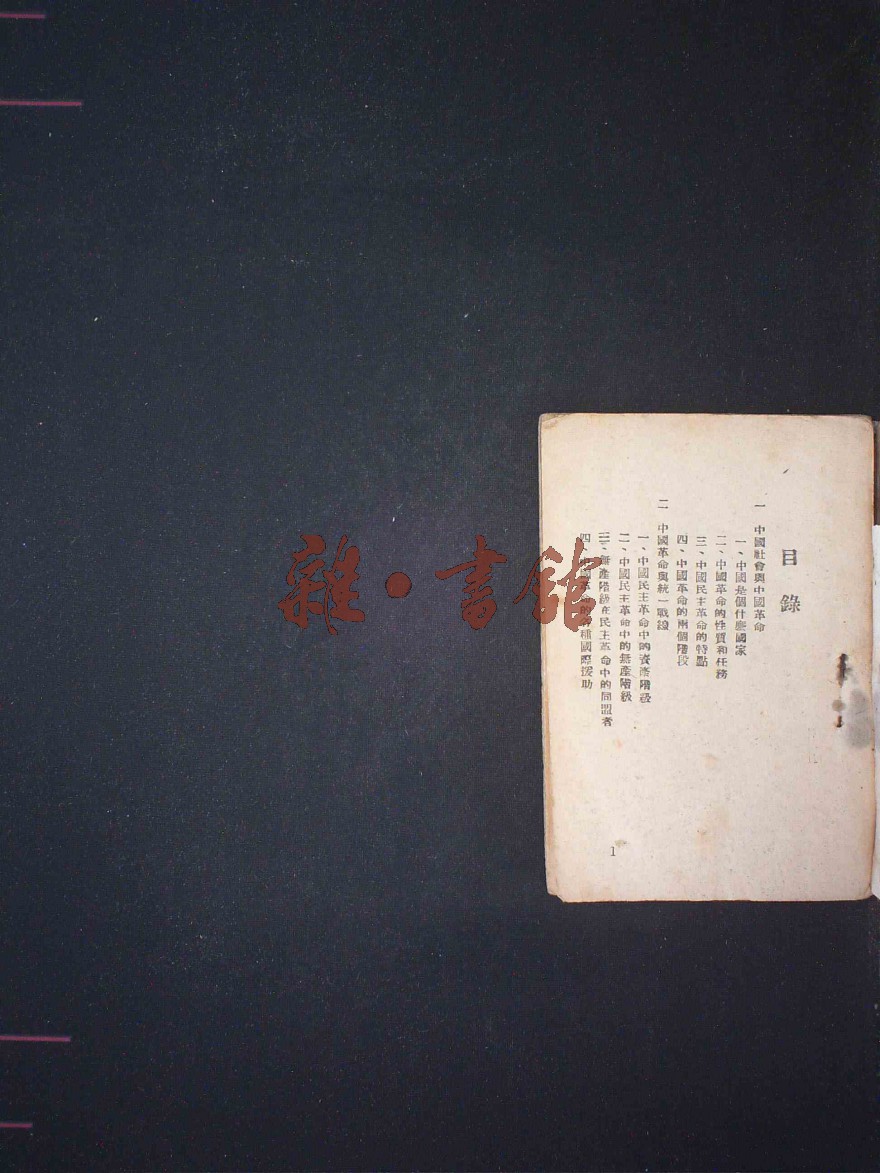 目錄
一 中國社會與中國革命
一、中國是個什麼國家
二、中國革命的性質和任務
三、中國民主革命的特點
四、中國革命的兩個階段
二 中國革命與統一戰線
一、中國民主革命中的資產階級
二、中國民主革命中的無產階級
三、無產階級在民主革命中的同盟者
四、中國革命的各種國際援助
1
雜·書館